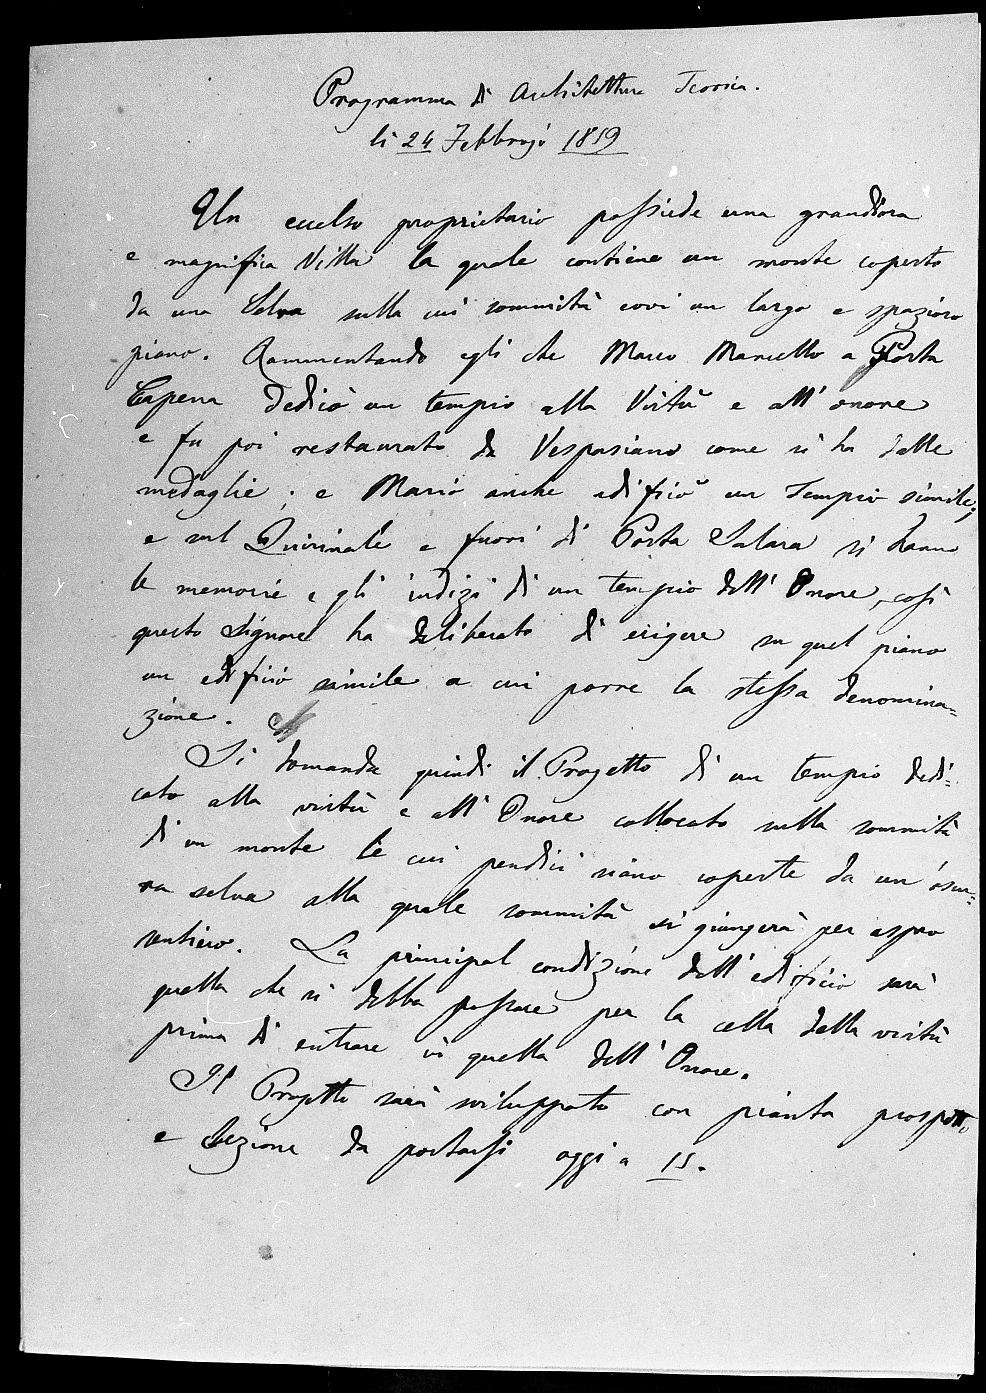 Programma di Architettura Teorica.
li 24 Febbrajo 1859
Un eccelso proprietario possiede una grandiosa
e magnifica Villa la quale contiene un monte coperto
da una Selva sulla cui sommità evvi un largo e spazioso
piano. Rammentando egli che Marco Marcello a Porta
Capena dedicò un tempio alla Virtù e all' onore
e fu poi restaurato da Vespasiano come si ha dalle
medaglie ; e Mario anche edificò un Tempio simile;
e sul Quirinale e fuori di Porta Salara si hanno
le memorie e gli indizi di un tempio dell' Onore, così
questo Signore ha deliberato di erigere su quel piano
un edificio simile a cui porre la stessa denomina=
zione.
Si domanda quindi il Progetto di un tempio dedi=
cato alla virtù e all' Onore collocato sulla sommità
di un monte le cui pendici siano coperte da un' oscu=
ra selva alla quale sommità si giungerà per aspro
sentiero. La principal condizione dell' edificio sarà
quella che si debba passare per la cella della virtù
prima di entrare in quella dell' Onore.
Il Progetto sarà sviluppato con pianta prospetto
e Sezione da portarsi oggi a 15.